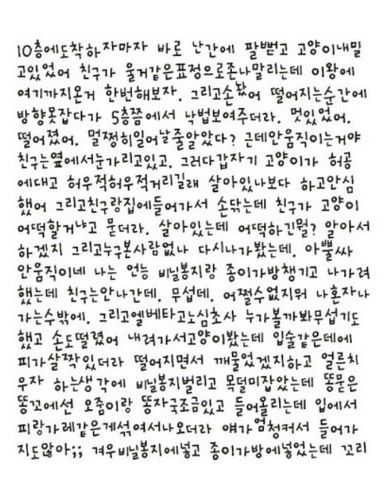 10층에도착하자마자 바로 난간에 팔뻗고 고양이내밀
고있었어 친구가 울거같은표정으로존나말리는데 이왕에
여기까지온거 한번해보자. 그리고손놨어 떨어지는순간에
방향못잡다가 5층쯤에서 낙법보여주더라. 멋있었어.
떨어졌어. 멀쩡히일어날줄알았다? 근데안움직이는거야
친구는옆에서눈가리고있고. 그러다갑자기 고양이가 허공
에대고 허우적허우적거리길래 살아있나보다 하고안심
했어 그리고친구랑집에들어가서 손닦는데 친구가 고양이
어떡할거냐고 묻더라. 살아있는데 어떡하긴뭘? 알아서
하겠지 그리고누구본사람없나 다시나가봤는데. 아뿔싸
안움직이네 나는 언능 비닐봉지랑 종이가방챙기고 나가려
했는데 친구는안나간데. 무섭데. 어쩔수없지뭐 나혼자나
가는수밖에. 그리고엘베타고노심초사 누가볼까봐무섭기도
했고 손도떨렸어 내려가서고양이봤는데 입술같은데에
피가살짝있더라 떨어지면서 깨물었겠지하고 얼른치
우자 하는생각에 비닐봉지벌리고 목덜미잡았는데 똥문은
똥꼬에선 오줌이랑 똥자국조금있고 들어올리는데 입에서
피랑가래같은게섞여서나오더라 얘가엄청커서 들어가
지도않아;; 겨우비닐봉지에넣고 종이가방에넣었는데 꼬리